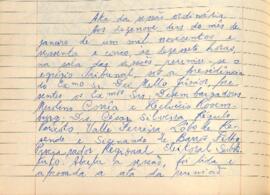 Ata da sessão ordinária
Aos dezenove dias do mês de
janeiro de um mil novecentos e
sessenta e cinco às dezesseis horas,
na sala das sessões, reuniu-se o
egrégio Tribunal, sob a presidência
do Exmo. Sr. Des. Mello Júnior, pre-
sentes os Exmos. Srs. Desembargadores
Martins Corrêa e Helvécio Rosem-
burg, Drs. Cesar Silveira, Régulo
Peixoto, Valle Ferreira, Lobo de Re-
sende e Sizenando de Barros Filho,
Procurador Regional Eleitoral Substi-
tuto. Aberta a sessão, foi lida e
aprovada a ata da reunião